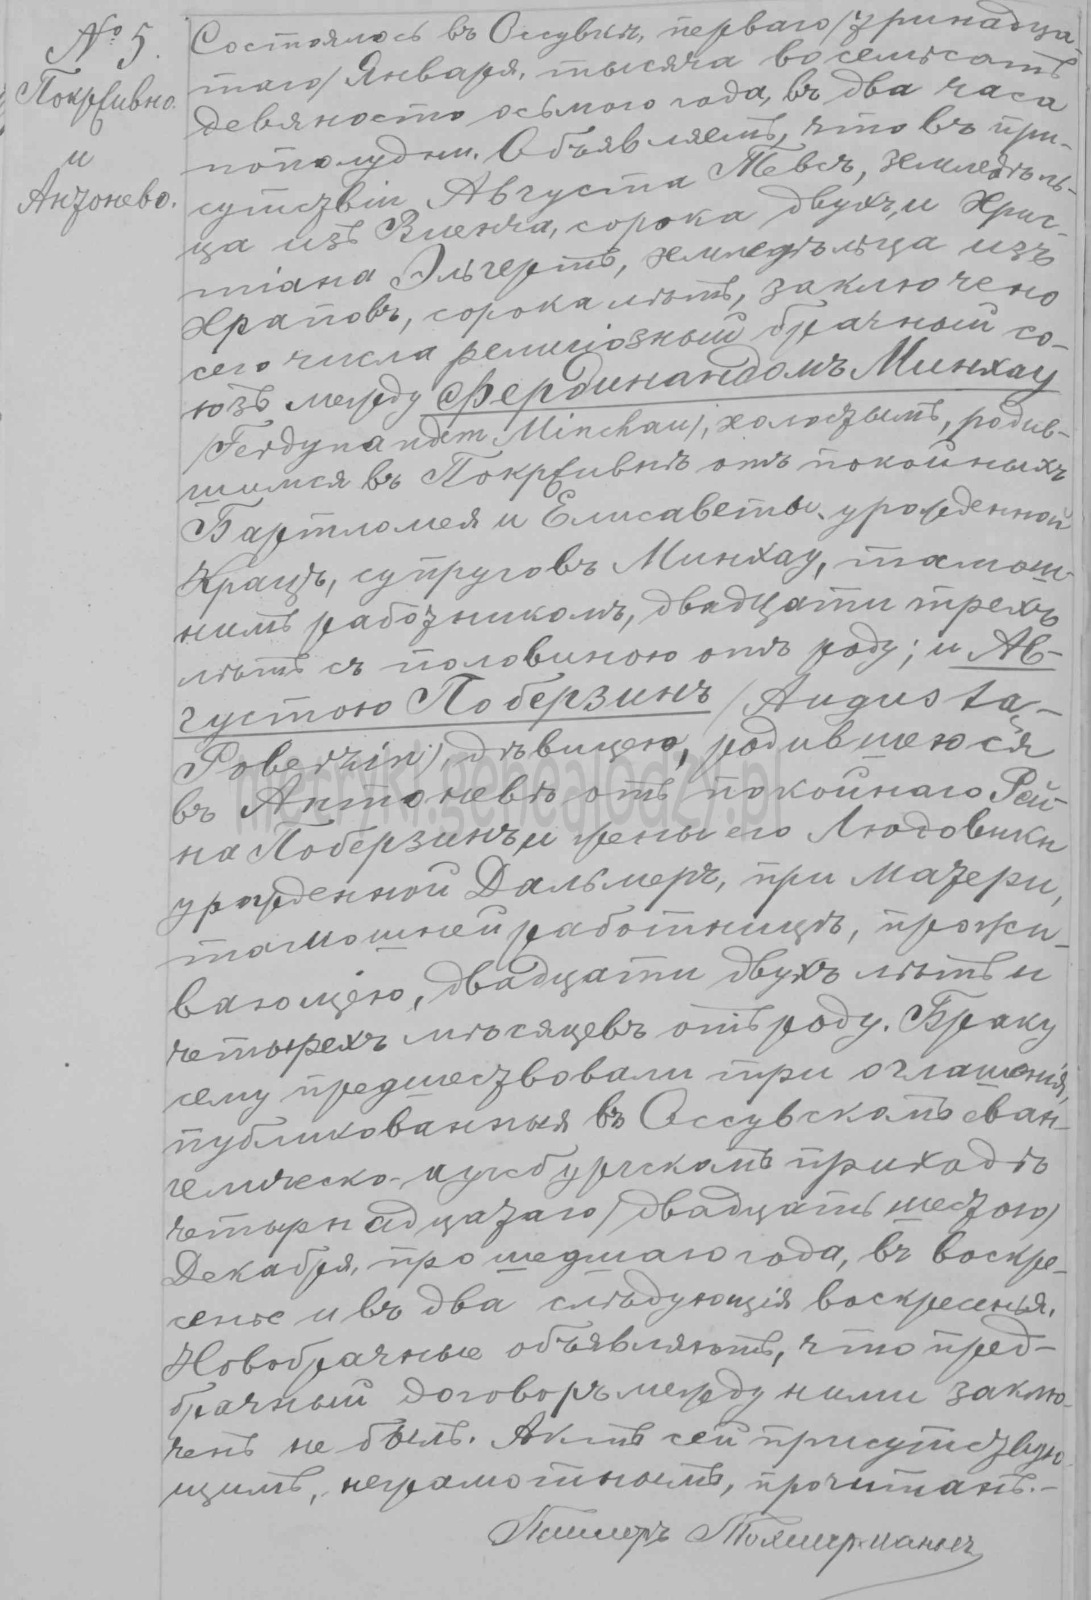 № 5.
Покрживно.
и
Антонево.
Состоялось въ Оссувкѣ, перваго /тринадца-
таго/ Января, тысяча восемьсотъ
девяносто осьмого года, въ два часа
пополудни. Объявляемъ, что въ при-
сутствіи Августа Тевсъ, земледѣль-
ца изъ сорока двухъ, и Хрис-
тіана Эльгертъ, земледѣльца изъ
Храповъ, сорока лѣтъ, заключено
сего числа религіозный брачный со-
юзъ между Фердинандомъ Минхау
/Ferdynandem Minchau/, холостымъ, родив-
шимся въ Покрживнѣ отъ покойныхъ
Бартломея и Елисаветы, урожденной
Крацъ, супруговъ Минхау, тамош-
нимъ работникомъ, двадцати трехъ
лѣтъ съ половиною отъ роду; и Ав-
густою Поберзинъ /Augusta
Poberzin/, дѣвицею, родившеюся
въ Антоневѣ отъ покойнаго Рей-
на Поберзинъ, и жены его Людовики
урожденной Дальмеръ, при матери,
тамошней работницѣ, прожи-
вающею, двадцати двухъ лѣтъ и
четырехъ мѣсяцевъ отъ роду. Браку
сему предшествовали три оглашенія,
публикованныя въ Оссувскомъ еван-
гелическо-аугсбургскомъ приходѣ
четырнадцатаго /двадцать шестого/
Декабря, прошедшаго года, въ воскре-
сенье и въ два слѣдующія воскресенья.
Новобрачные объявляютъ, что пред-
брачный договоръ между ними заклю-
ченъ не былъ. Актъ сей присутствую-
щимъ, неграмотнымъ, прочитанъ.-
metryki.genealodzy.pl